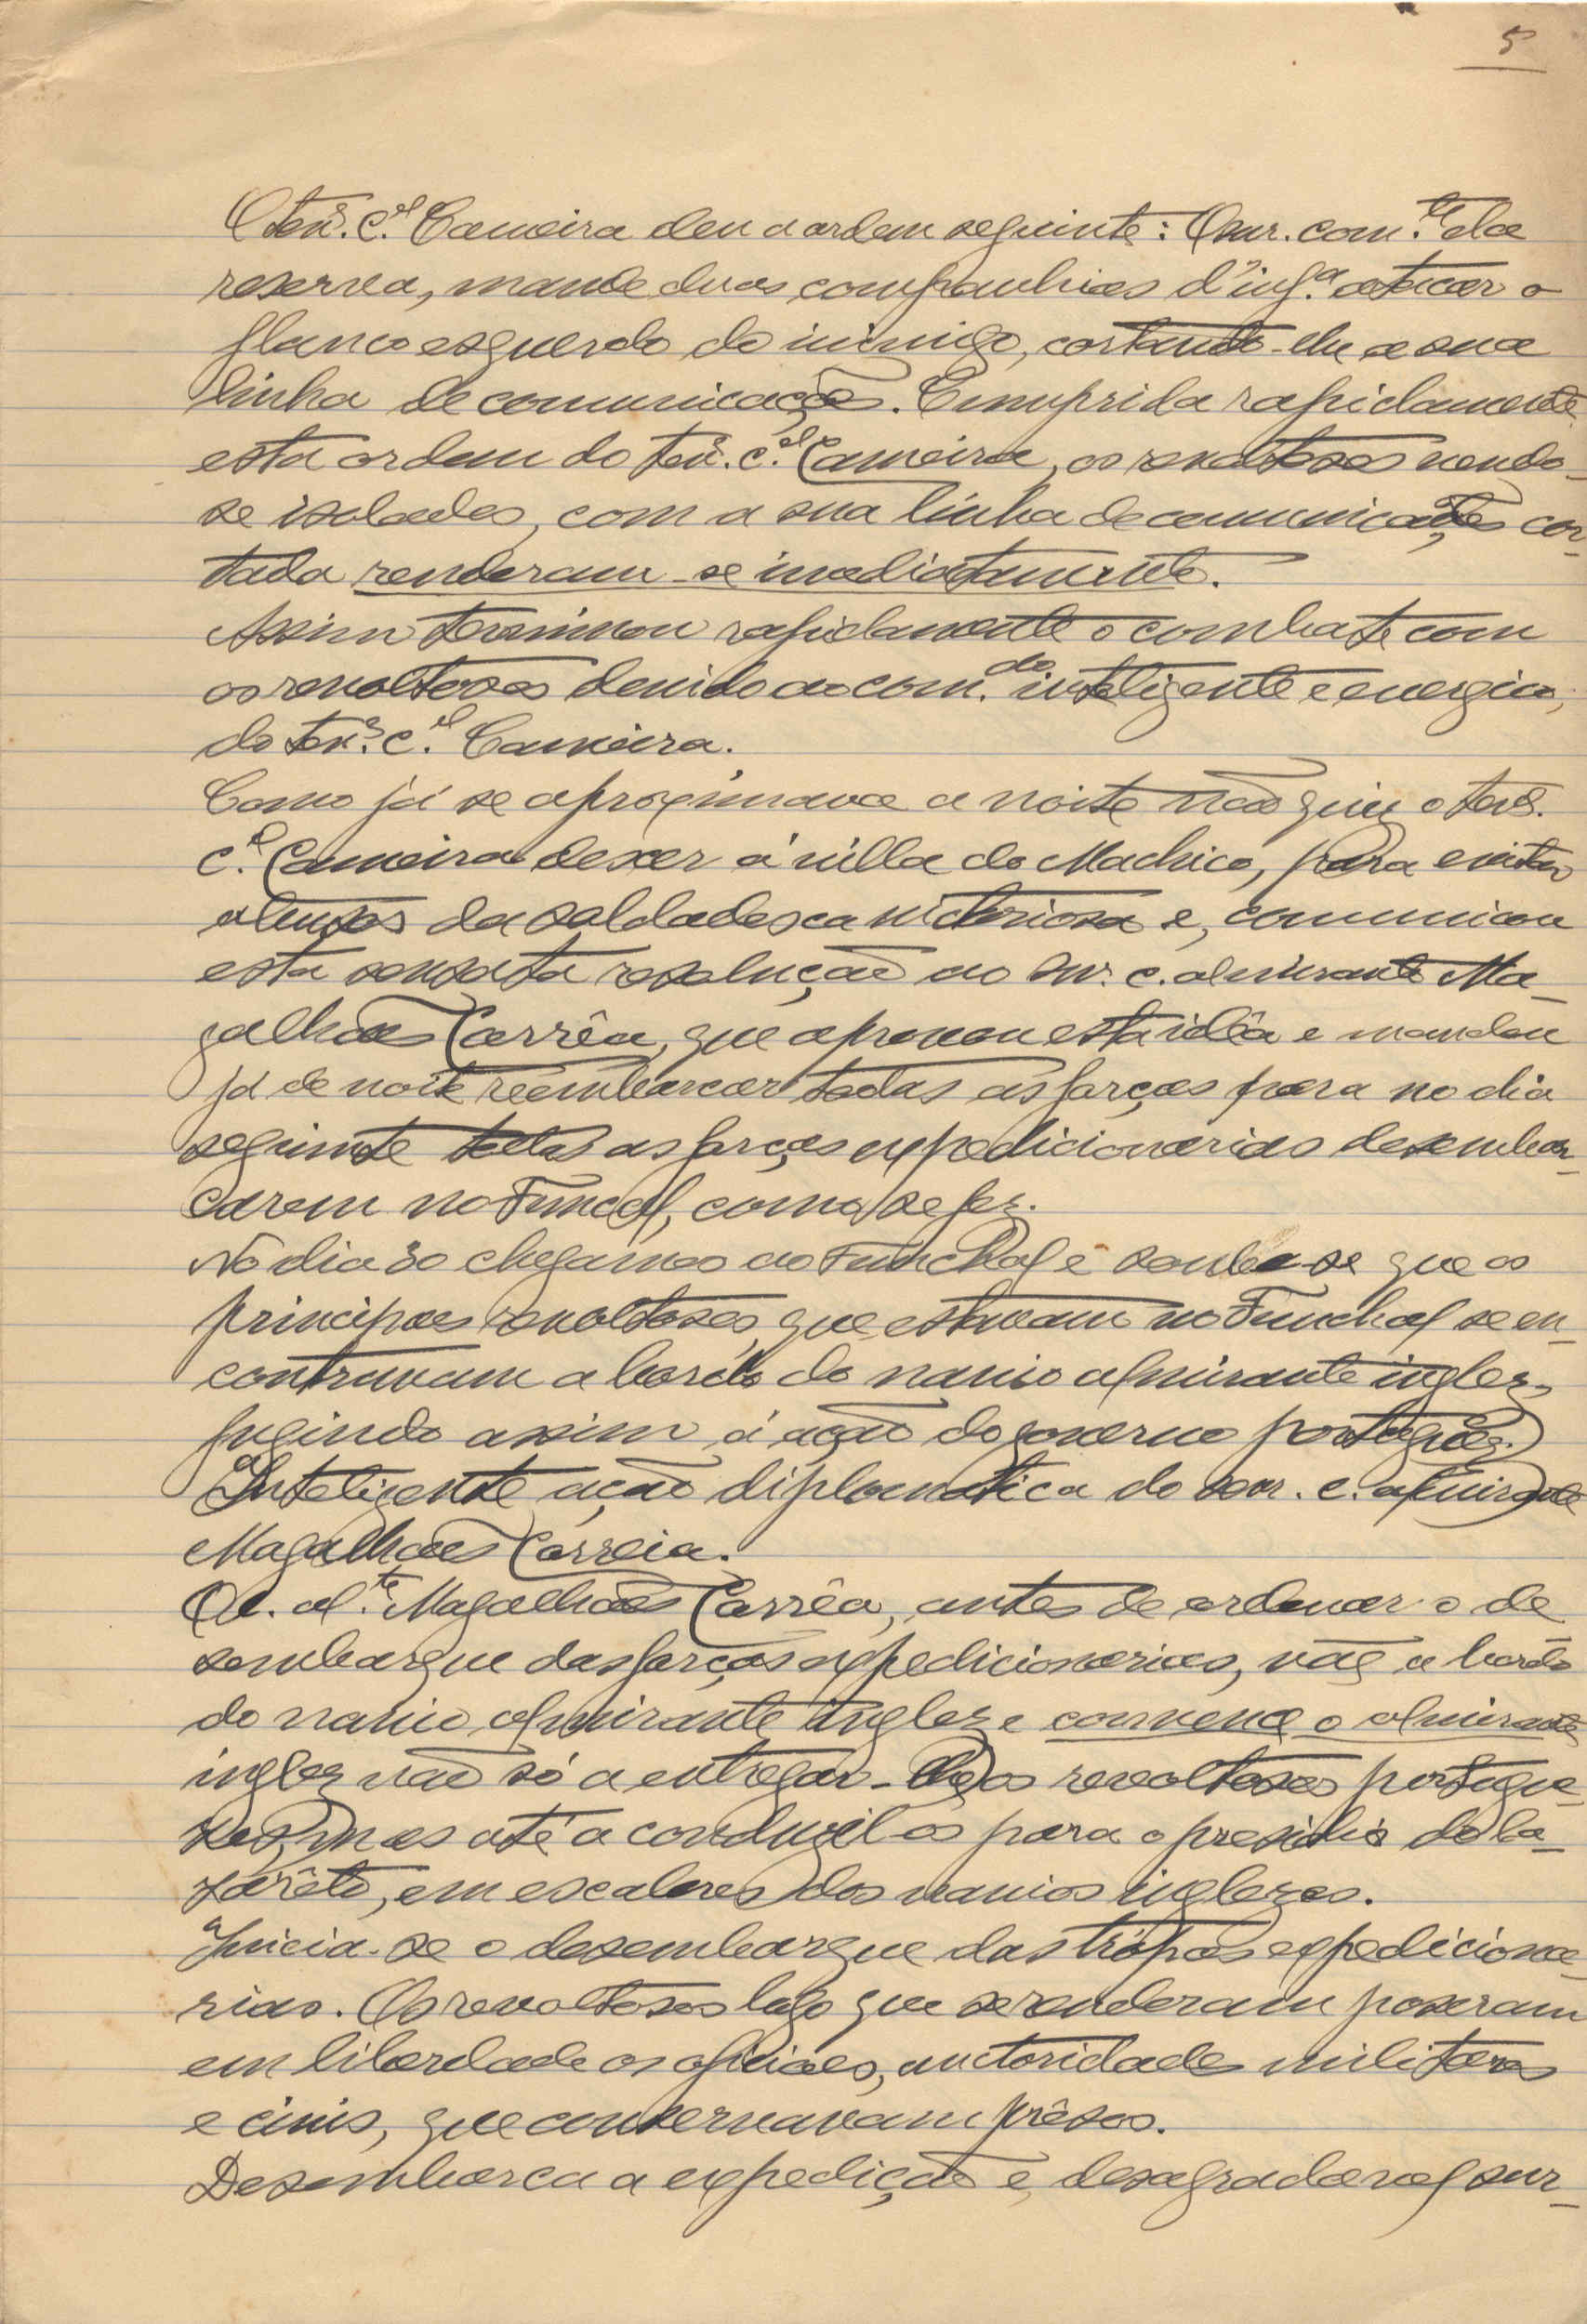 5
O tenᵉ. c.ᵉˡ Cameira deu a ordem seguinte: O snr. com.ᵗᵉ da
reserva, mande duas companhias d'inf.ª atacar o
flanco esquerdo do inimigo, cortando-lhe a sua
linha de comunicação. Cumprida rapidamente
esta ordem do tenᵉ. c.ᵉˡ Cameira, os revoltosos vendo-
se isolados, com a sua linha de comunicações cor-
tada renderam-se imediatamente.
Assim terminou rapidamente o combate com
os revoltosos devido ao com.ᵈᵒ inteligente e energico,
do tenᵉ. c.ᵉˡ Cameira.
Como já se aproximava a noite não quiz o tenᵉ.
c.ᵉˡ Cameira descer á villa do Machico, para evitar
abusos da soldadesca victoriosa e, comunicou
esta sensata resolução ao snr. c. almirante Ma-
galhães Corrêa, que aprovou esta idêa e mandou
já de noite reembarcar todas as forças para no dia
seguinte todas as forças expedicionarias desembar-
carem no Funcal, como se fez.
No dia 30 chegamos ao Funchal e soube-se que os
principaes revoltosos, que estavam no Funchal se en-
contravam a bordo do navio almirante inglez,
fugindo assim á ação do governo português.
Inteligente ação diplomatica do snr. c. almirante
Magalhães Correia.
O c. al.ᵗᵉ Magalhães Corrêa, antes de ordenar o de-
sembarque das forças expedicionarias, vae a bordo
do navio almirante inglez e convence o almirante
inglez não só a entregar-lhe os revoltosos portugue-
ses, mas até a conduzil-os para o presidio do la-
zarêto, em escaleres dos navios inglezes.
Inicia-se o desembarque das trópas expediciona-
rias. Os revoltosos logo que se renderam poseram
em liberdade os oficiaes, auctoridades militares
e civis, que conservavam prêsos.
Desembarca a expedição e, desagradavel sur-